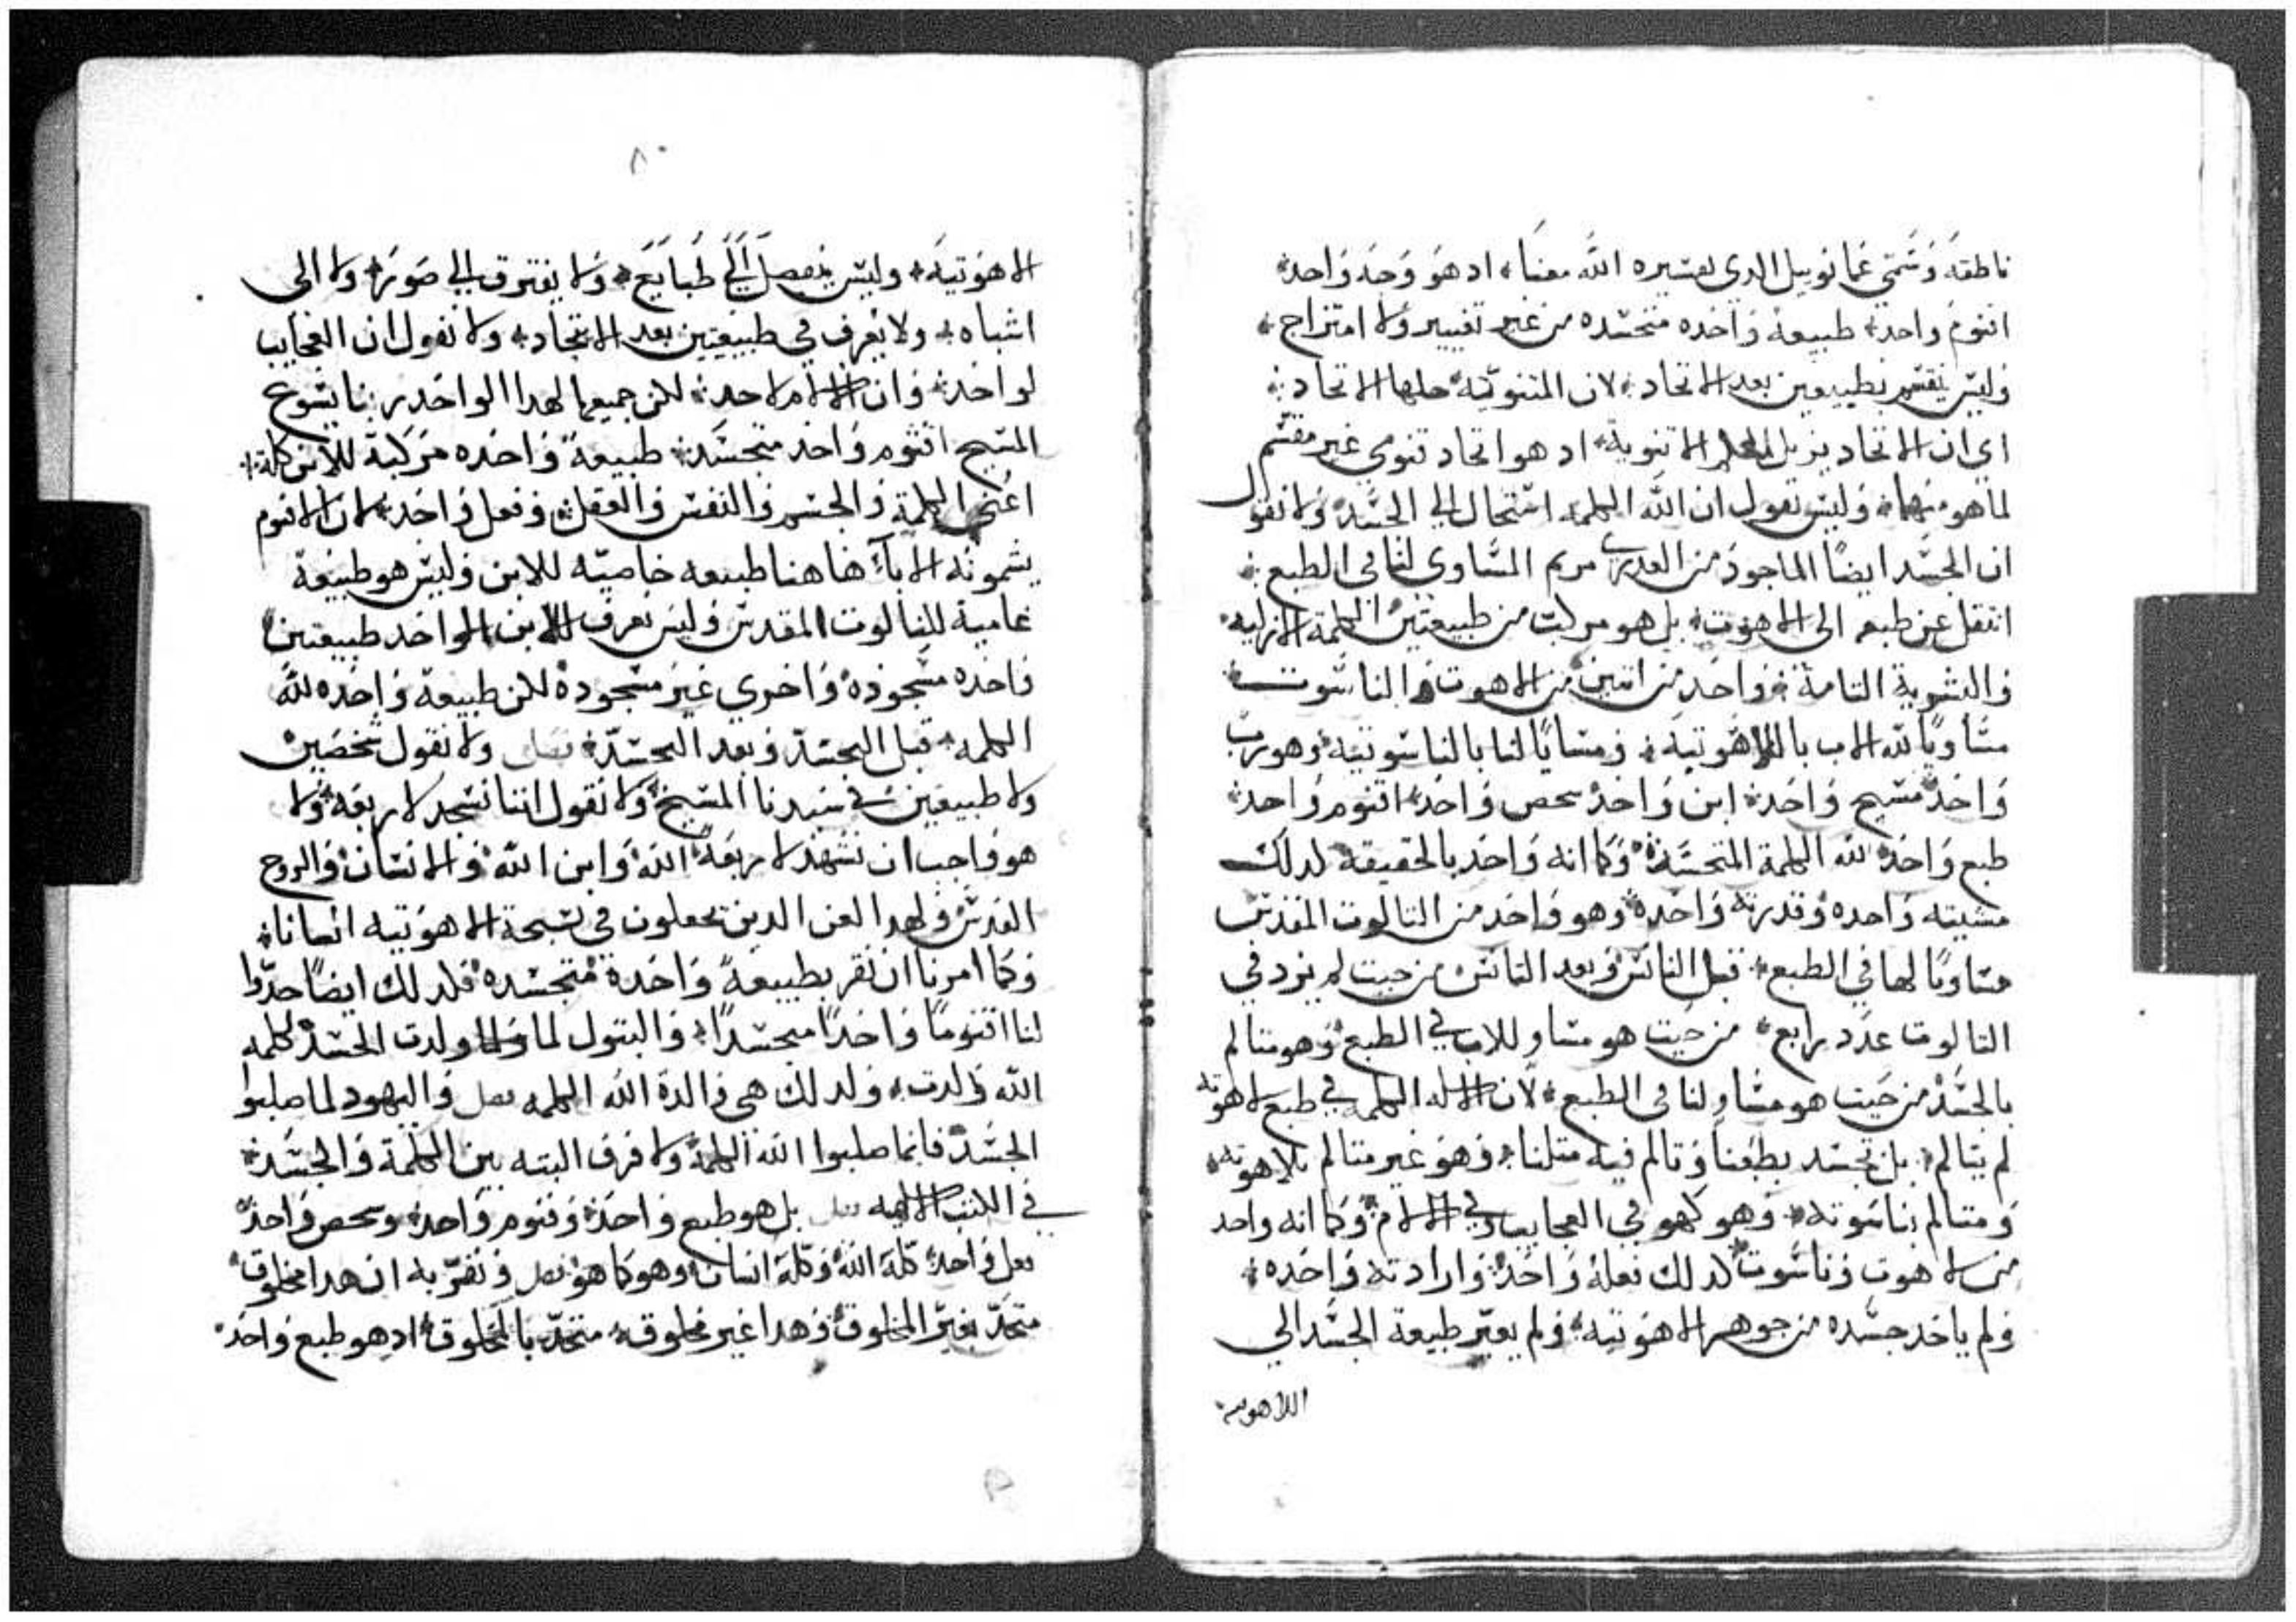 ناطقه وسمي عمانوييل الدي تفسيره الله معنا، اد هو وجه واحد
اقنوم واحد، طبيعة واحده متجسده من غير تغيير ولا امتزاج،
وليس ينقسم بطبيعتين بعد الاتحاد، لان المتنويّه حلها الاتحاد،
اي ان الاتحاد يزيل الاتنوية، اد هو اتحاد قنومي غير مقسم
لما هو منهما، وليس نقول ان الله الكلمه استحال الي الجسد، ولا نقول
ان الجسد ايضًا الماخوذ من العدري مريم المساوي لنا في الطبع،
انتقل عن طبعه الى اللاهوت، بل هو مركب من طبيعتين الكلمة الازليه،
والبشرية التامة، وواحد من اتنين من اللاهوت والناسوت
مساويًا لله الاب باللاهوتية، ومساويًا لنا بالناسوتية، وهو رب
واحد، مسيح واحد، ابن واحد، شخص واحد، اقنوم واحد،
طبع واحد، لله الكلمة المتجسدة، وكما انه واحد بالحقيقة، لدلك
مشيته واحده، وقدرته واحدة، وهو واحد من التالوت المقدس
مساويًا لها في الطبع، قبل التانس وبعد التانس، من حيت لم يزد في
التالوت عدد رابع، من حيت هو مساو للاب في الطبع، وهو متالم
بالجسد، من حيت هو مساو لنا في الطبع، لان الاله الكلمة في طبع لاهوته
لم يتالم، بل تجسد بطبعنا وتالم فيه متلنا، وهو غير متالم بلاهوته،
ومتالم بناسوته، وهو كهو في العجايب وفي الالام، وكما انه واحد
من لاهوت وناسوت، لدلك فعله واحد، وارادته واحده،
ولم ياخد جسده من جوهر اللاهوتية، ولم يغير طبيعة الجسد الي
اللاهوتيه
٨٠
اللاهوتية، وليس ينفصل الي طبايع، ولا يفترق الي صور، ولا الى
اشباه، ولا يعرف في طبيعتين بعد الاتحاد، ولا نقول ان العجايب
لواحد، وان الالام لاحد، لكن جميعها لهدا الواحد ربنا يسوع
المسيح، اقنوم واحد متجسد، طبيعة واحده مركبة للابن كلها،
اعني الكلمة والجسم والنفس والعقل، وفعل واحد، لان الاقنوم
يسمونه الابآء هاهنا طبيعه خاصيه للابن وليس هو طبيعة
عامية للتالوت المقدس وليس نعرف للابن الواحد طبيعتين
واحده مسجوده، واخري غير مسجودة لكن طبيعة واحده لله
الكلمه، قبل التجسد وبعد التجسد، فصل ولا نقول شخصين
ولا طبيعتين في سيدنا المسيح، ولا نقول اننا نسجد لاربعة، ولا
هو واجب ان نسجد لاربعة، الله، وابن الله، والانسان، والروح
القدس، ولهدا العن الدين يجعلون في تسبحة اللاهوتيه انسانا،
وكما امرنا ان نقر بطبيعة واحدة متجسده، فلدلك ايضًا حدّوا
لنا اقنومًا واحدًا متجسدًا، والبتول لما ولدت الجسد، لكلمه
الله ولدت، ولدلك هي والدة الله الكلمه فصل واليهود لما صلبوا
الجسد، فانما صلبوا الله الكلمة، ولا فرق البته بين الكلمة والجسد،
في الكتب الالهيه فصل بل هو طبع واحد، وقنوم واحد، وشخص واحد،
فعل واحد، كله الله وكله انسان، وهو كما هو، فصل ونقرّ به ان هدا مخلوق
متحدّ بغير المخلوق، وهدا غير مخلوق، متحدّ بالمخلوق، اد هو طبع واحد،